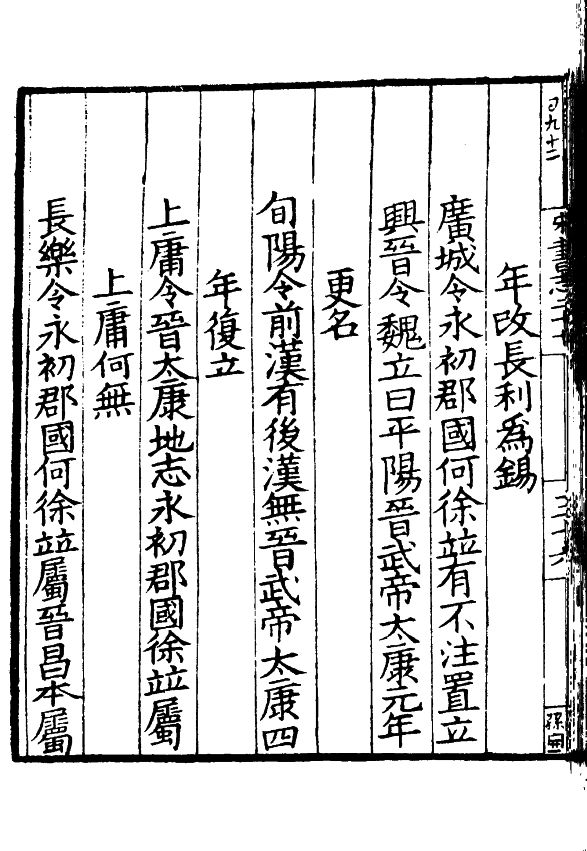 年改長利爲錫
廣城令永初郡國何徐竝有不注置立
興晉令魏立曰平陽晉武帝太康元年
更名
旬陽令前漢有後漢無晉武帝太康四
年復立
上庸令晉太康地志永初郡國徐竝屬
上庸何無
長樂令永初郡國何徐竝屬晉昌本屬